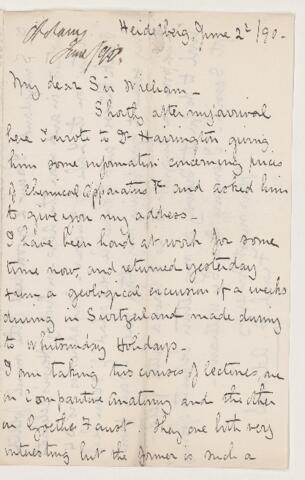 Adams
June/90.
Heidelberg, June 2d/90.
My dear Sir William -
Shortly after my arrival
here I wrote to Dr Harrington giving
him some information concerning prices
of Chemical Apparatus &c and asked him
to give you my address -
I have been hard at work for some
time now, and returned yesterday
from a geological excursion of a weeks
during in Switzerland made during
to Whitsunday Holidays -
I am taking this courses of lectures, one
on Comparative Anatomy and the other
on Goethe's Faust They are both very
interesting but the former is such a